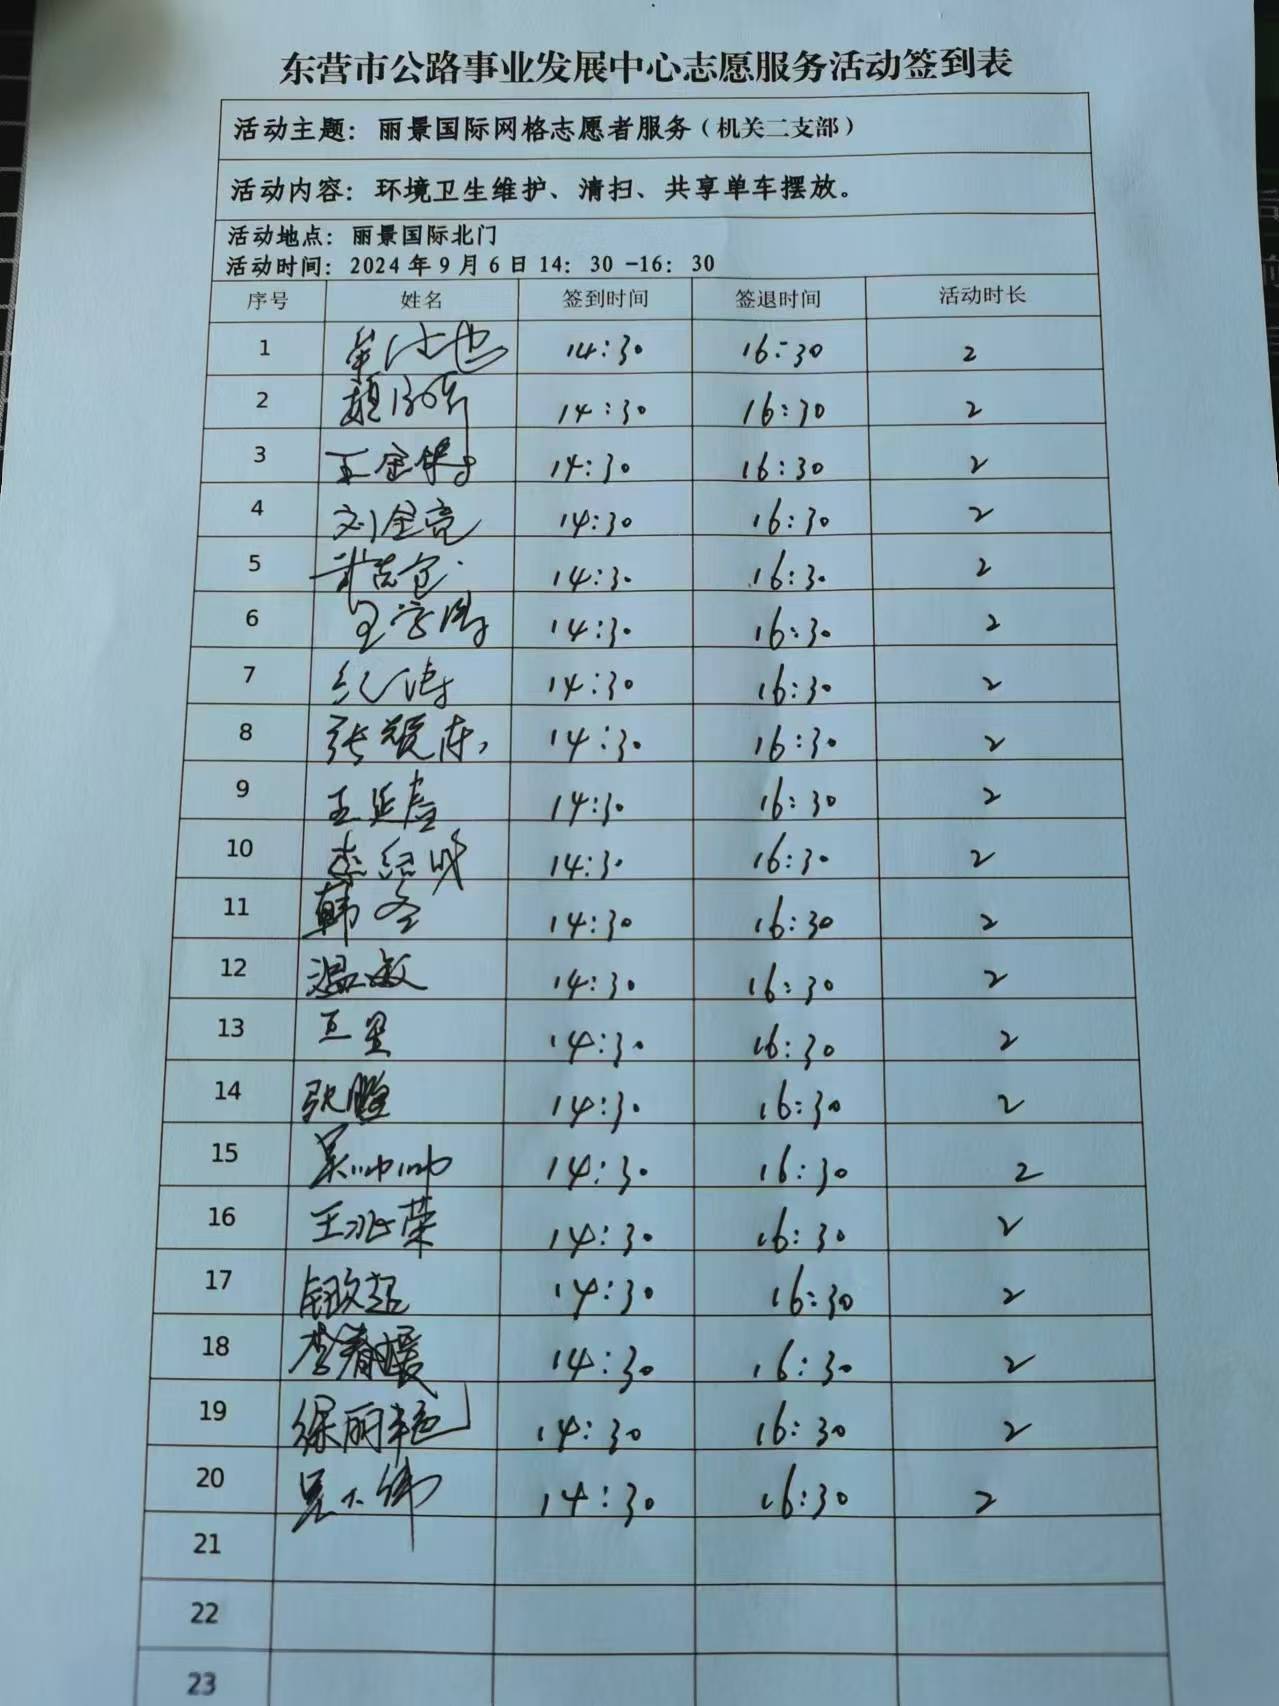 东营市公路事业发展中心志愿服务活动签到表
活动主题：丽景国际网格志愿者服务（机关二支部）
活动内容：环境卫生维护、清扫、共享单车摆放。
活动地点：丽景国际北门
活动时间：2024年9月6日14：30-16：30
序号 姓名 签到时间 签退时间 活动时长
1 14:30 16:30 2
2 14:30 16:30 2
3 王金 14:30 16:30 2
4 刘金亮 14:30 16:30 2
5 14:30 16:30 2
6 14:30 16:30 2
7 纪涛 14:30 16:30 2
8 张 14:30 16:30 2
9 王延 14:30 16:30 2
10 李绍 14:30 16:30 2
11 韩冬 14:30 16:30 2
12 温敏 14:30 16:30 2
13 王星 14:30 16:30 2
14 张鹏 14:30 16:30 2
15 吴帅帅 14:30 16:30 2
16 王兆荣 14:30 16:30 2
17 14:30 16:30 2
18 李春媛 14:30 16:30 2
19 徐丽艳 14:30 16:30 2
20 吴大伟 14:30 16:30 2
21
22
23